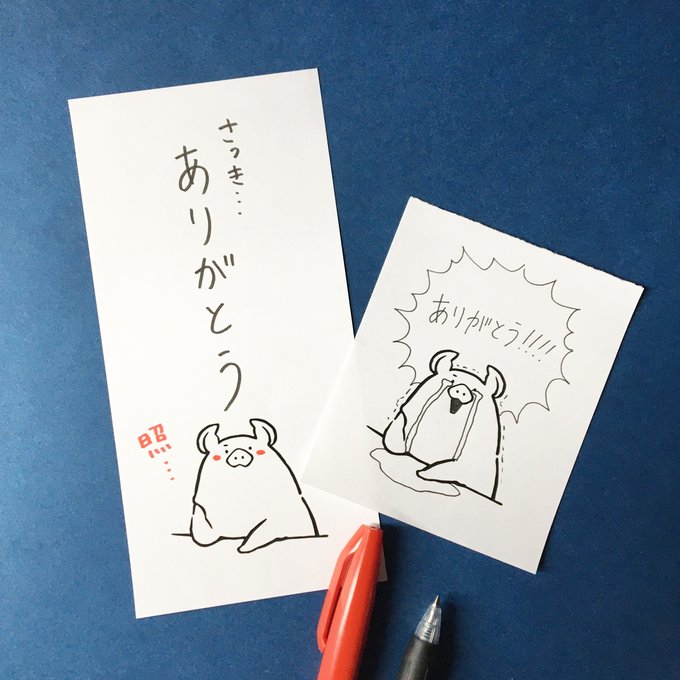 さっき…
ありがとう
照…
ありがとう!!!!